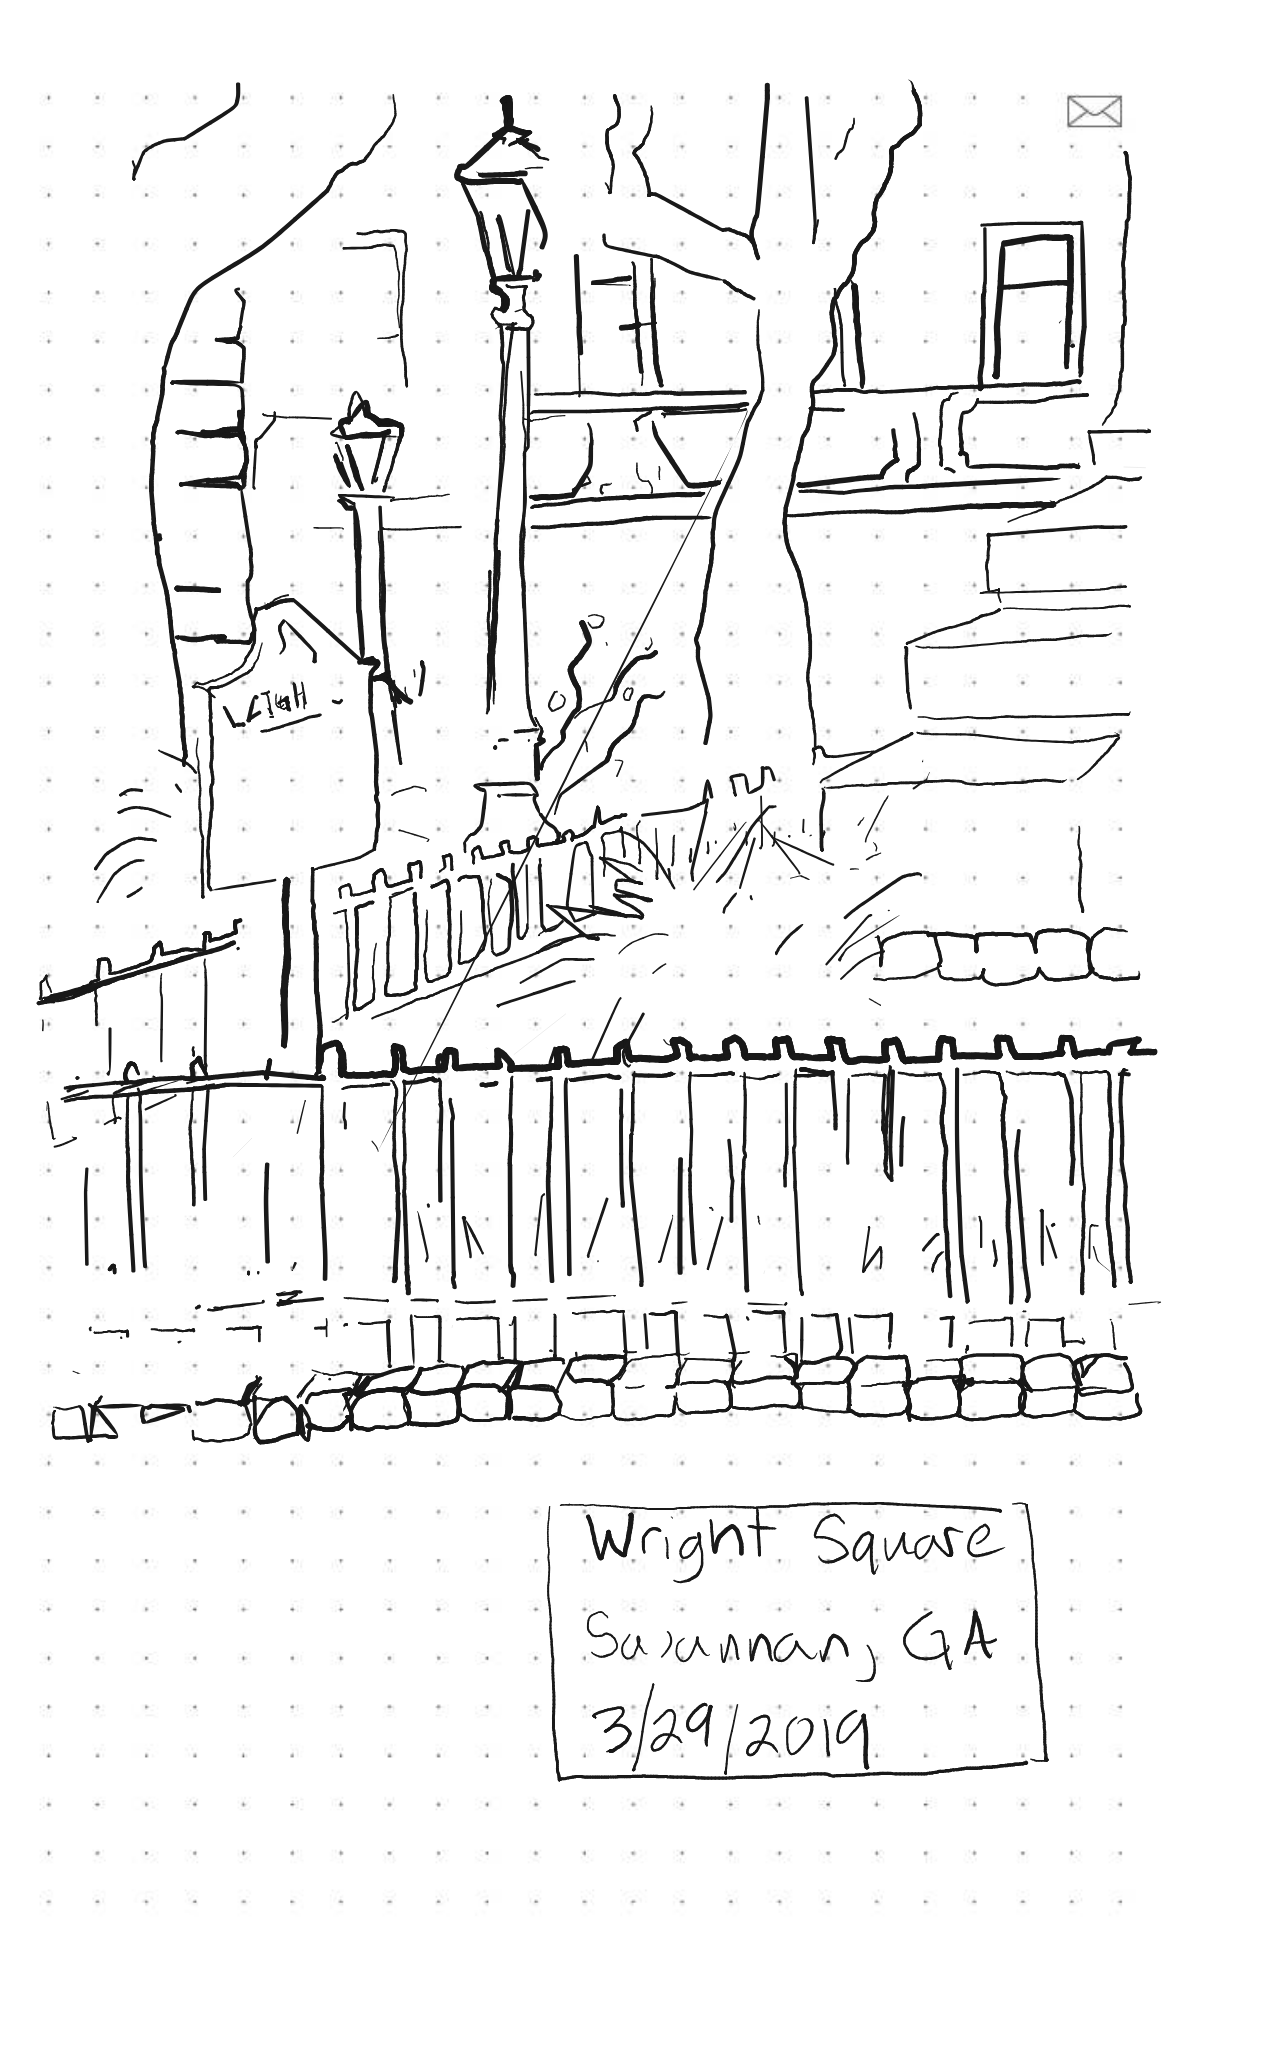 Wright Square
Savannah, GA
3/29/2019